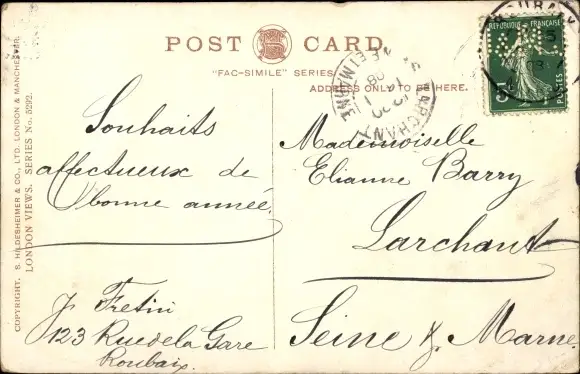 POST CARD.
"FAC-SIMILE" SERIES.
ADDRESS ONLY TO BE HERE.
COPYRIGHT. S. HILDESHEIMER & CO., LTD. LONDON & MANCHESTER.
LONDON VIEWS. SERIES No. 5292.
RÉPUBLIQUE FRANÇAISE
POSTES
ROUBAIX
LARCHANT
SEINE ET MARNE
Souhaits
affectueux de
bonne année
J. Fretin
123 Rue de la Gare
Roubaix.
Mademoiselle
Elianne Barry
Larchant
Seine & Marne.